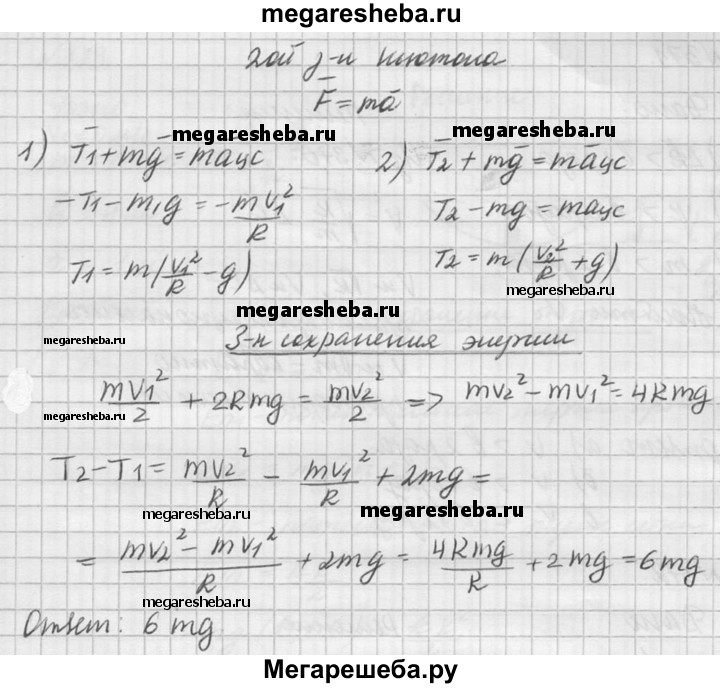 megaresheba.ru
2ой з-н Ньютона
F̅ = ma̅
megaresheba.ru megaresheba.ru
1) T̅1 + mg̅ = ma̅цс 2) T̅2 + mg̅ = ma̅цс
-T1 - m1g = -mV1²/R T2 - mg = maцс
T1 = m(V1²/R - g) T2 = m(V2²/R + g)
megaresheba.ru
megaresheba.ru
megaresheba.ru З-н сохранения энергии
mV1²/2 + 2Rmg = mV2²/2 => mV2² - mV1² = 4Rmg
megaresheba.ru
T2 - T1 = mV2²/R - mV1²/R + 2mg =
megaresheba.ru megaresheba.ru
= mV2² - mV1²/R + 2mg = 4Rmg/R + 2mg = 6mg
megaresheba.ru megaresheba.ru
Ответ: 6 mg
Мегарешеба.ру